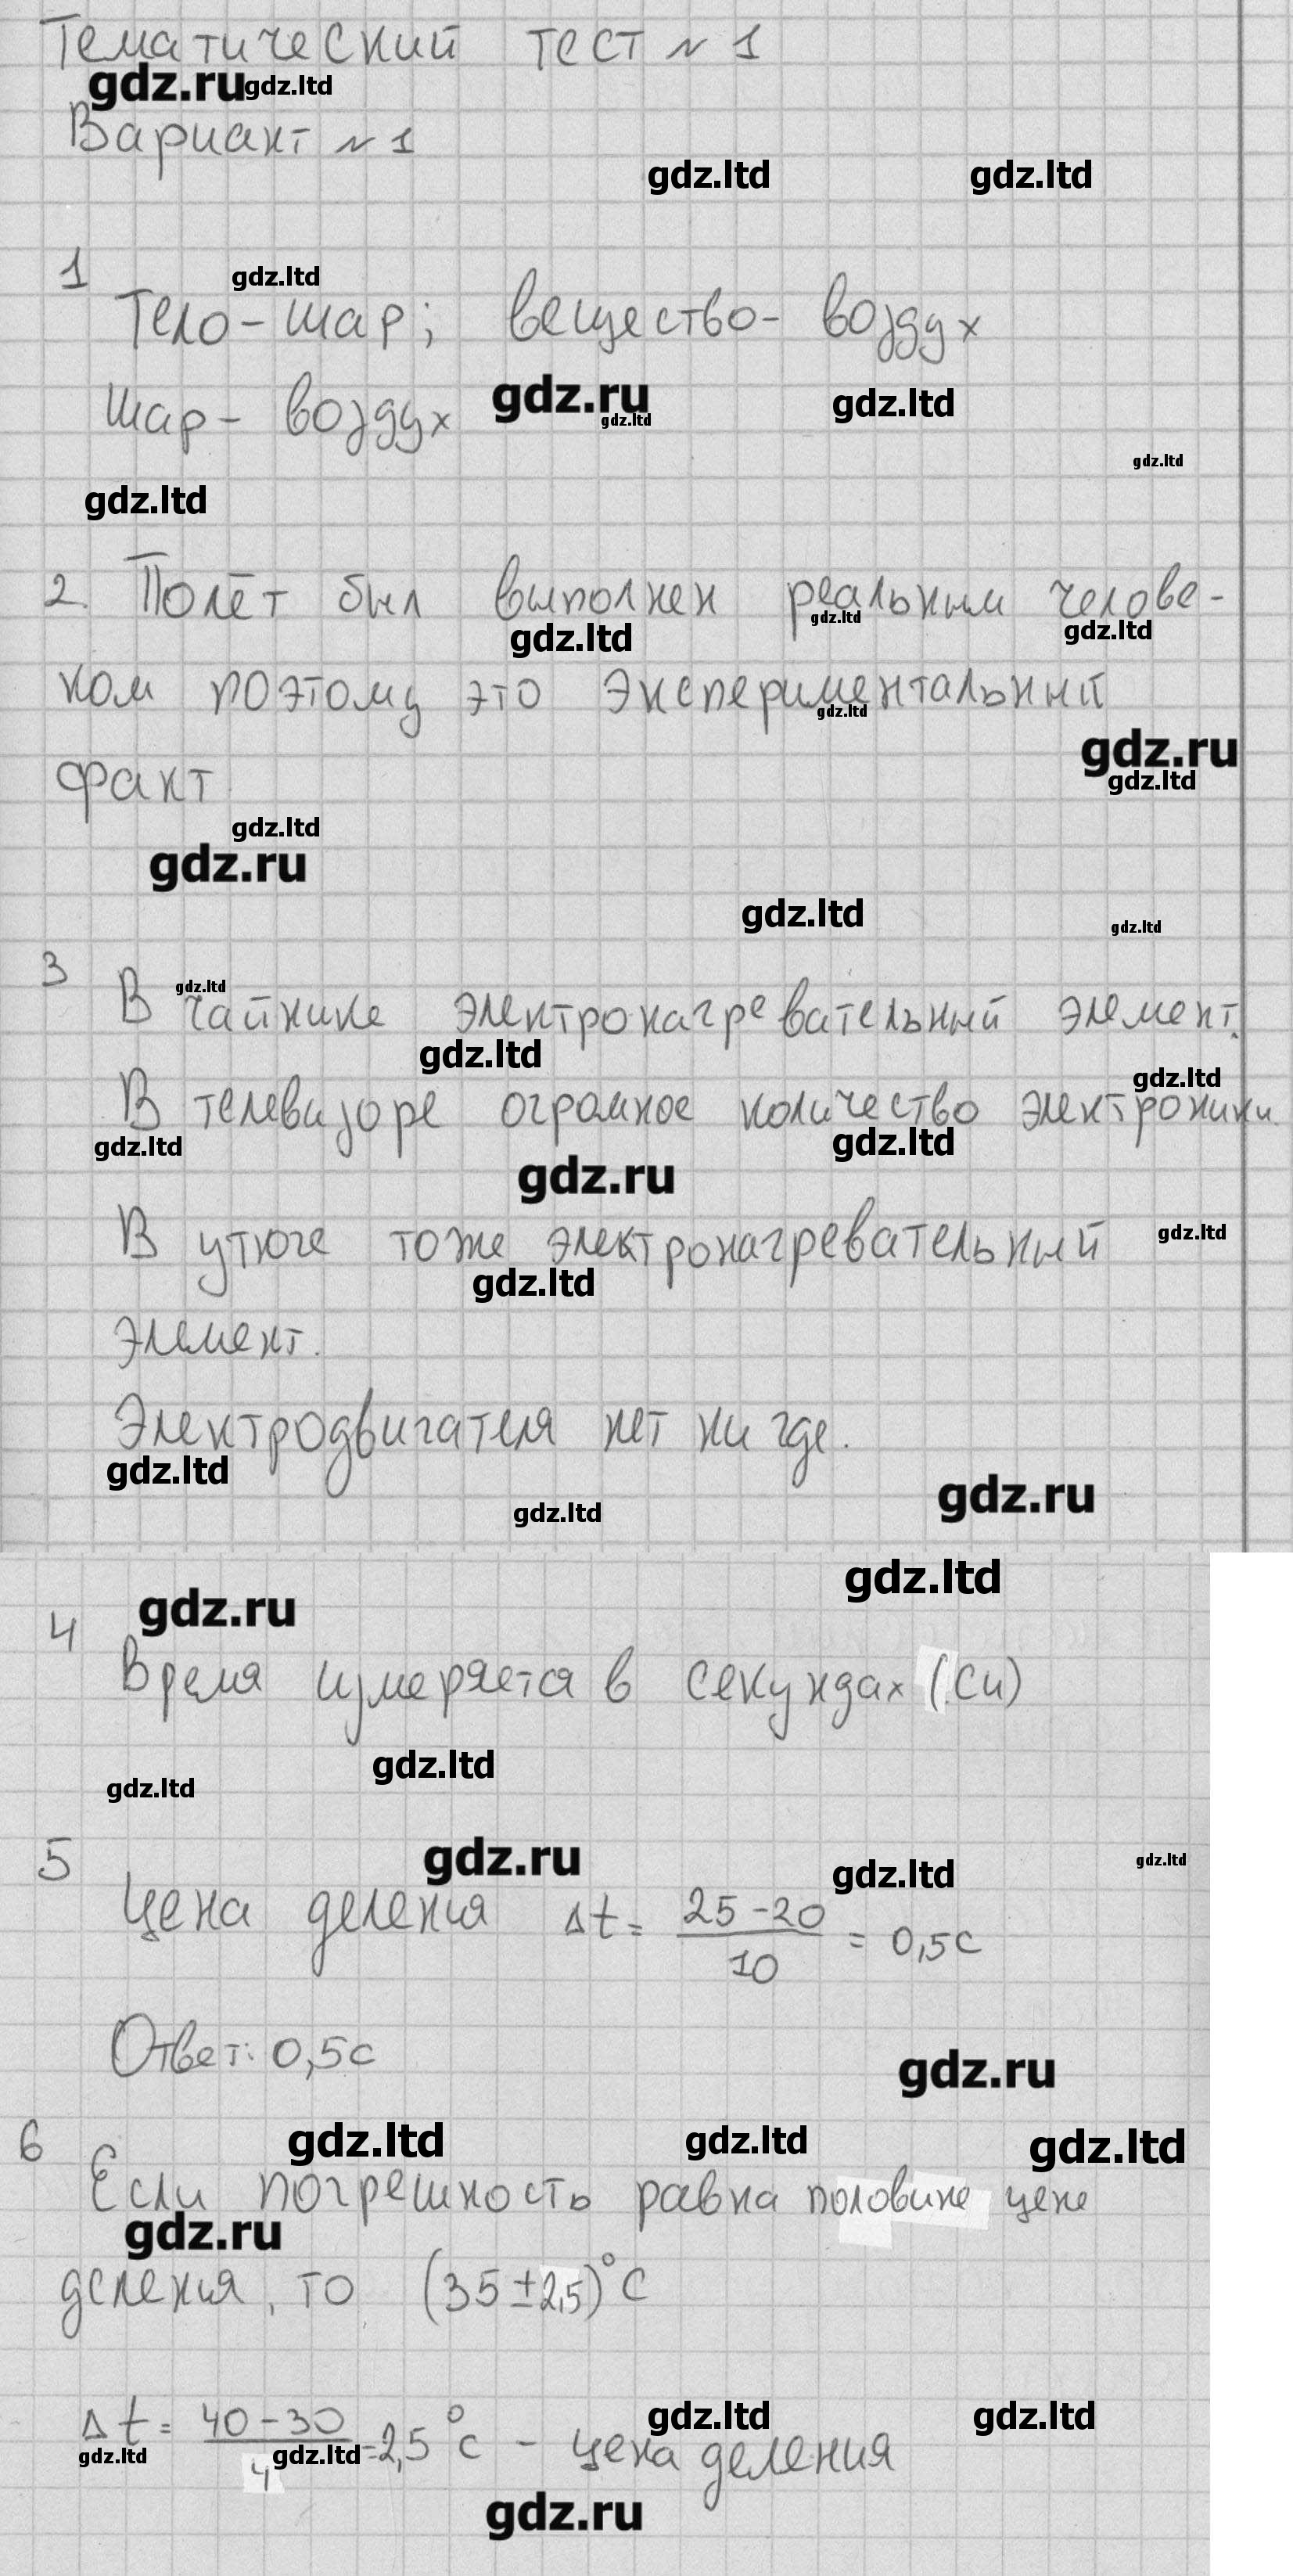 Тематический тест № 1
gdz.ru gdz.ltd
Вариант № 1
gdz.ltd gdz.ltd
1 gdz.ltd
Тело - шар; вещество - воздух
Шар - воздух gdz.ru gdz.ltd gdz.ltd
gdz.ltd
gdz.ltd
2. Полёт был выполнен реальным челове-
gdz.ltd gdz.ltd gdz.ltd
ком поэтому это экспериментальный
gdz.ltd
gdz.ru
факт gdz.ltd
gdz.ltd
gdz.ru
gdz.ltd gdz.ltd
3 gdz.ltd
В чайнике электронагревательный элемент.
gdz.ltd gdz.ltd
В телевизоре огромное количество электроники.
gdz.ltd gdz.ltd
gdz.ru
В утюге тоже электронагревательный gdz.ltd
gdz.ltd
элемент.
Электродвигателя нет ни где.
gdz.ltd gdz.ru
gdz.ltd
gdz.ltd
4 gdz.ru
Время измеряется в секундах (Си)
gdz.ltd gdz.ltd
5 gdz.ru gdz.ltd gdz.ltd
Цена деления Δt = 25 - 20 / 10 = 0,5с
Ответ: 0,5с
gdz.ru
6 gdz.ltd gdz.ltd gdz.ltd
Если погрешность равна половине цене
gdz.ru
деления, то (35 ± 2,5)°С
gdz.ltd gdz.ltd
Δt = 40 - 30 / 4 = 2,5 °с - цена деления
gdz.ltd gdz.ltd
gdz.ru